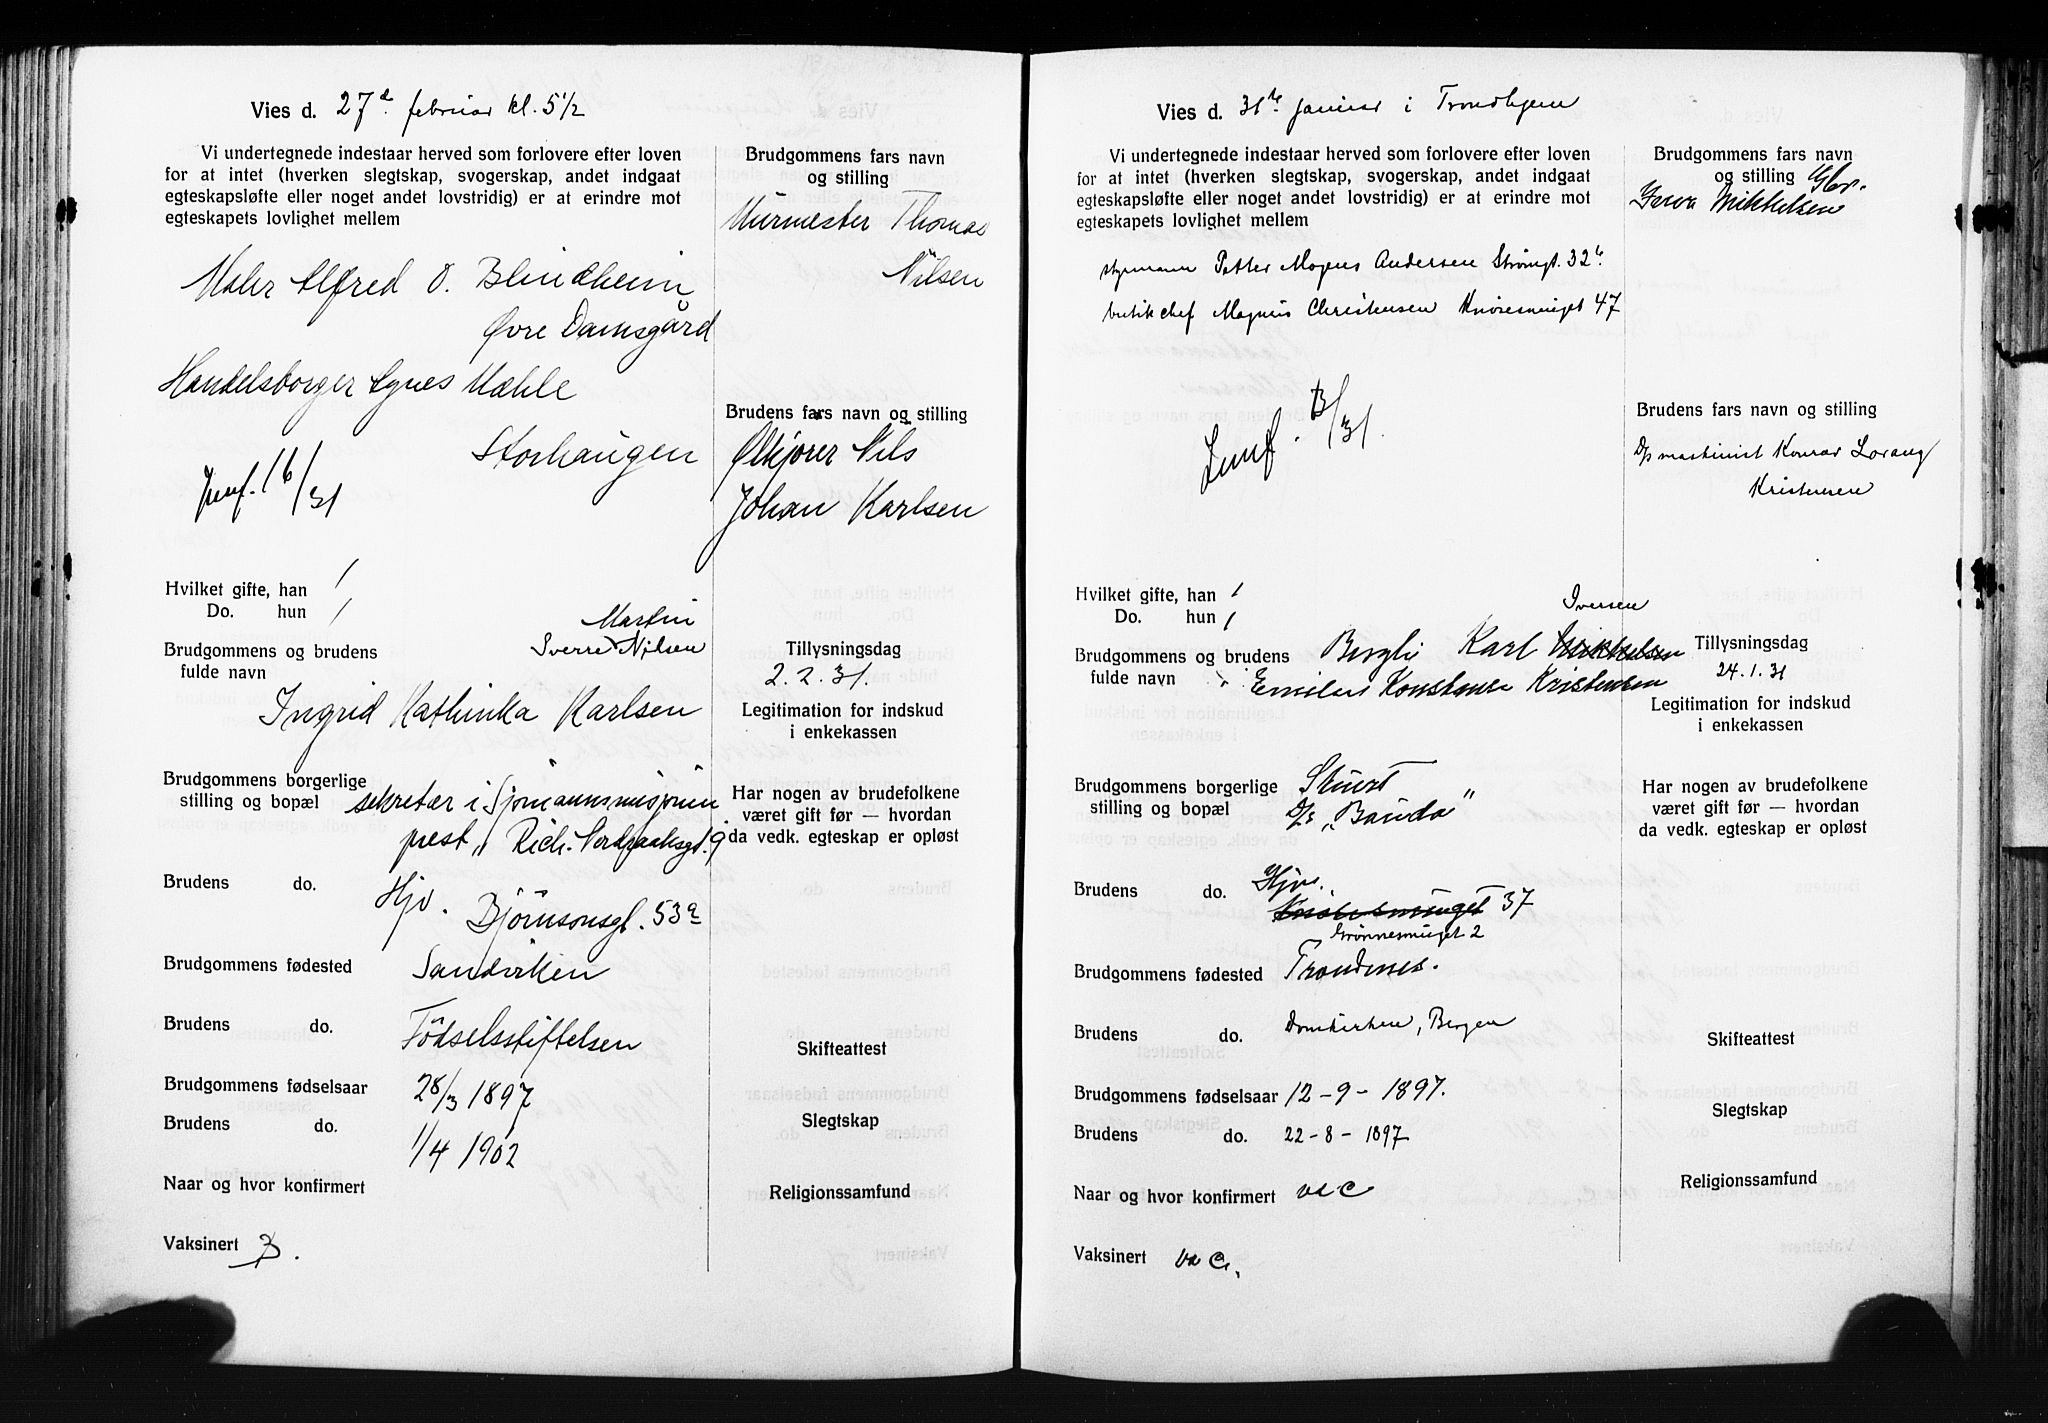 Vies d. 27d. februar kl. 5 1/2
Vi undertegnede indestaar herved som forlovere efter loven
for at intet (hverken slegtskap, svogerskap, andet indgaat
egteskapsløfte eller noget andet lovstridig) er at erindre mot
egteskapets lovlighet mellem
Maler Alfred O. Blindheim
Øvre Damsgård
Handelsborger Agnes Mæhle
Storhaugen
Junf. 16/31
Brudgommens fars navn
og stilling
Murmester Thomas
Nilsen
Brudens fars navn og stilling
Ølkjører Nils
Johan Karlsen
Hvilket gifte, han 1
Do. hun 1
Brudgommens og brudens
fulde navn
Martin
Sverre Nilsen
Ingrid Kathinka Karlsen
Tillysningsdag
2.2.31.
Legitimation for indskud
i enkekassen
Brudgommens borgerlige
stilling og bopæl
sekretær i Sjømannsmisjonen
prest, Rich. Nordraaksgt. 9
Har nogen av brudefolkene
været gift før — hvordan
da vedk. egteskap er opløst
Brudens do. Hjv.
Bjørnsonsgt. 53a
Brudgommens fødested Sandviken
Brudens do. Födselsstiftelsen
Skifteattest
Brudgommens fødselsaar 28/3 1897
Brudens do. 1/4 1902
Slegtskap
Naar og hvor konfirmert
Religionssamfund
Vaksinert B.
Vies d. 31te januar i Trondhjem
Vi undertegnede indestaar herved som forlovere efter loven
for at intet (hverken slegtskap, svogerskap, andet indgaat
egteskapsløfte eller noget andet lovstridig) er at erindre mot
egteskapets lovlighet mellem
styrmann Petter Mogens Andersen Strømgt. 32b.
butikchef Magnus Christensen Knøsesmuget 47
Junf. B/31.
Brudgommens fars navn
og stilling Gbr.
Mikkelsen
Brudens fars navn og stilling
D/s maskinist Konrad Lorang
Kristensen
Hvilket gifte, han 1
Do. hun 1
Brudgommens og brudens
fulde navn
Iversen
Bergli Karl Mikkelsen
Konstance Kristensen
Tillysningsdag
24.1.31
Legitimation for indskud
i enkekassen
Brudgommens borgerlige
stilling og bopæl
Stuert
D/s "Banda"
Har nogen av brudefolkene
været gift før — hvordan
da vedk. egteskap er opløst
Brudens do. Hjv.
Knøsesmuget 37
Grønnesmuget 2
Brudgommens fødested Trondenes.
Brudens do. Domkirken, Bergen
Skifteattest
Brudgommens fødselsaar 12-9-1897.
Brudens do. 22-8-1897
Slegtskap
Naar og hvor konfirmert
Religionssamfund
Vaksinert